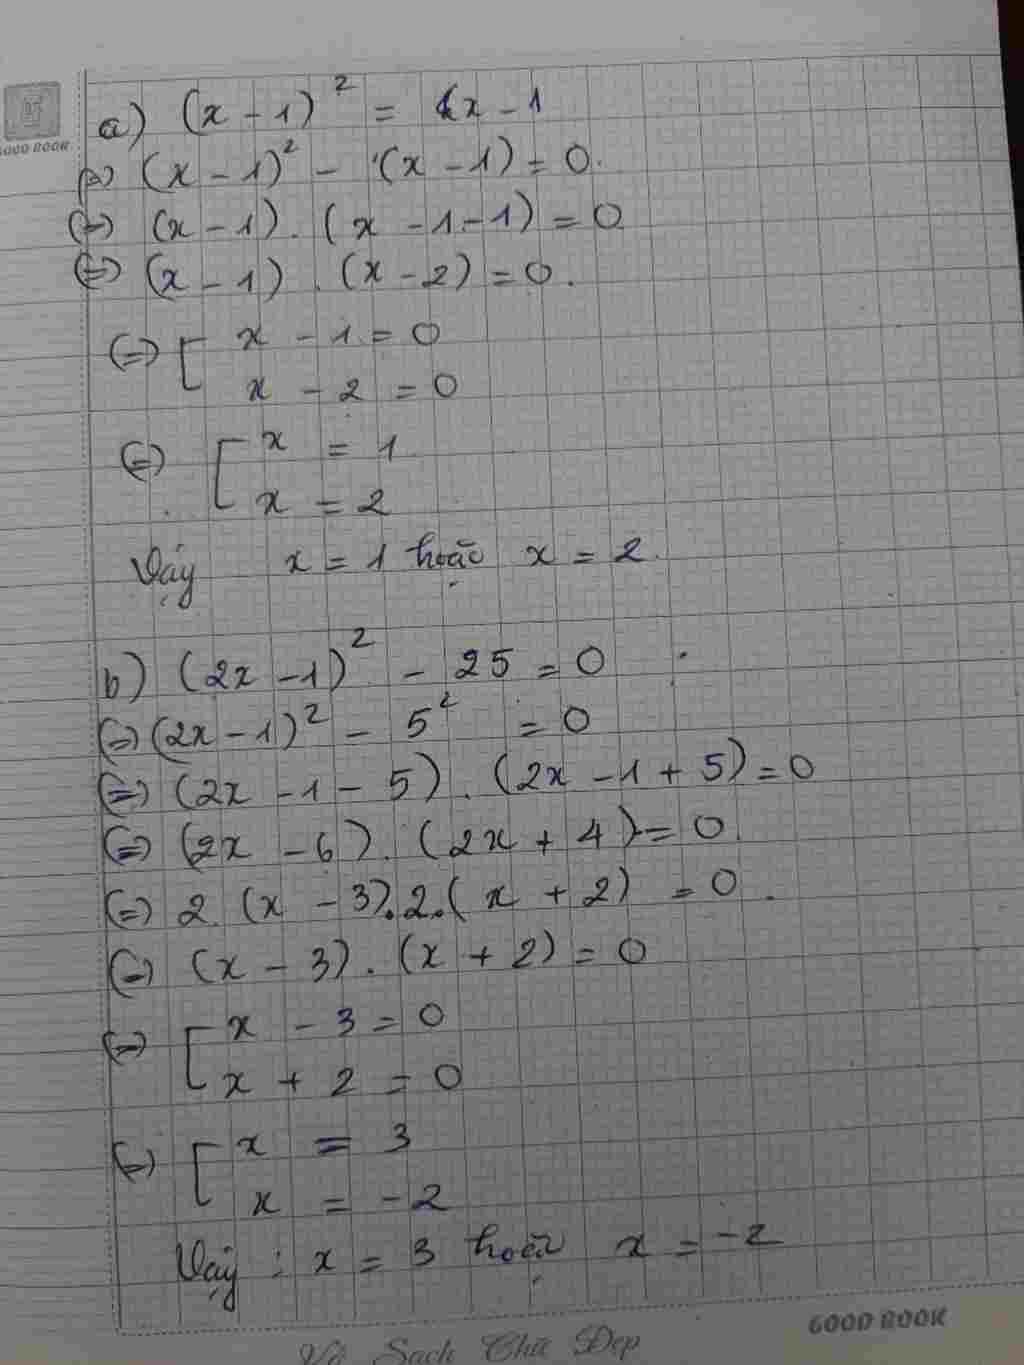 GOOD BOOK
a) (x - 1)² = x - 1
(=) (x - 1)² - (x - 1) = 0.
(=) (x - 1) . (x - 1 - 1) = 0
(=) (x - 1) . (x - 2) = 0.
(=) [ x - 1 = 0
x - 2 = 0
(=) [ x = 1
x = 2
Vậy x = 1 hoặc x = 2.
b) (2x - 1)² - 25 = 0
(=) (2x - 1)² - 5² = 0
(=) (2x - 1 - 5) . (2x - 1 + 5) = 0
(=) (2x - 6) . (2x + 4) = 0.
(=) 2 (x - 3).2.(x + 2) = 0.
(=) (x - 3) . (x + 2) = 0
(=) [ x - 3 = 0
x + 2 = 0
(=) [ x = 3
x = -2
Vậy : x = 3 hoặc x = -2
Vở Sạch Chữ Đẹp
GOOD BOOK